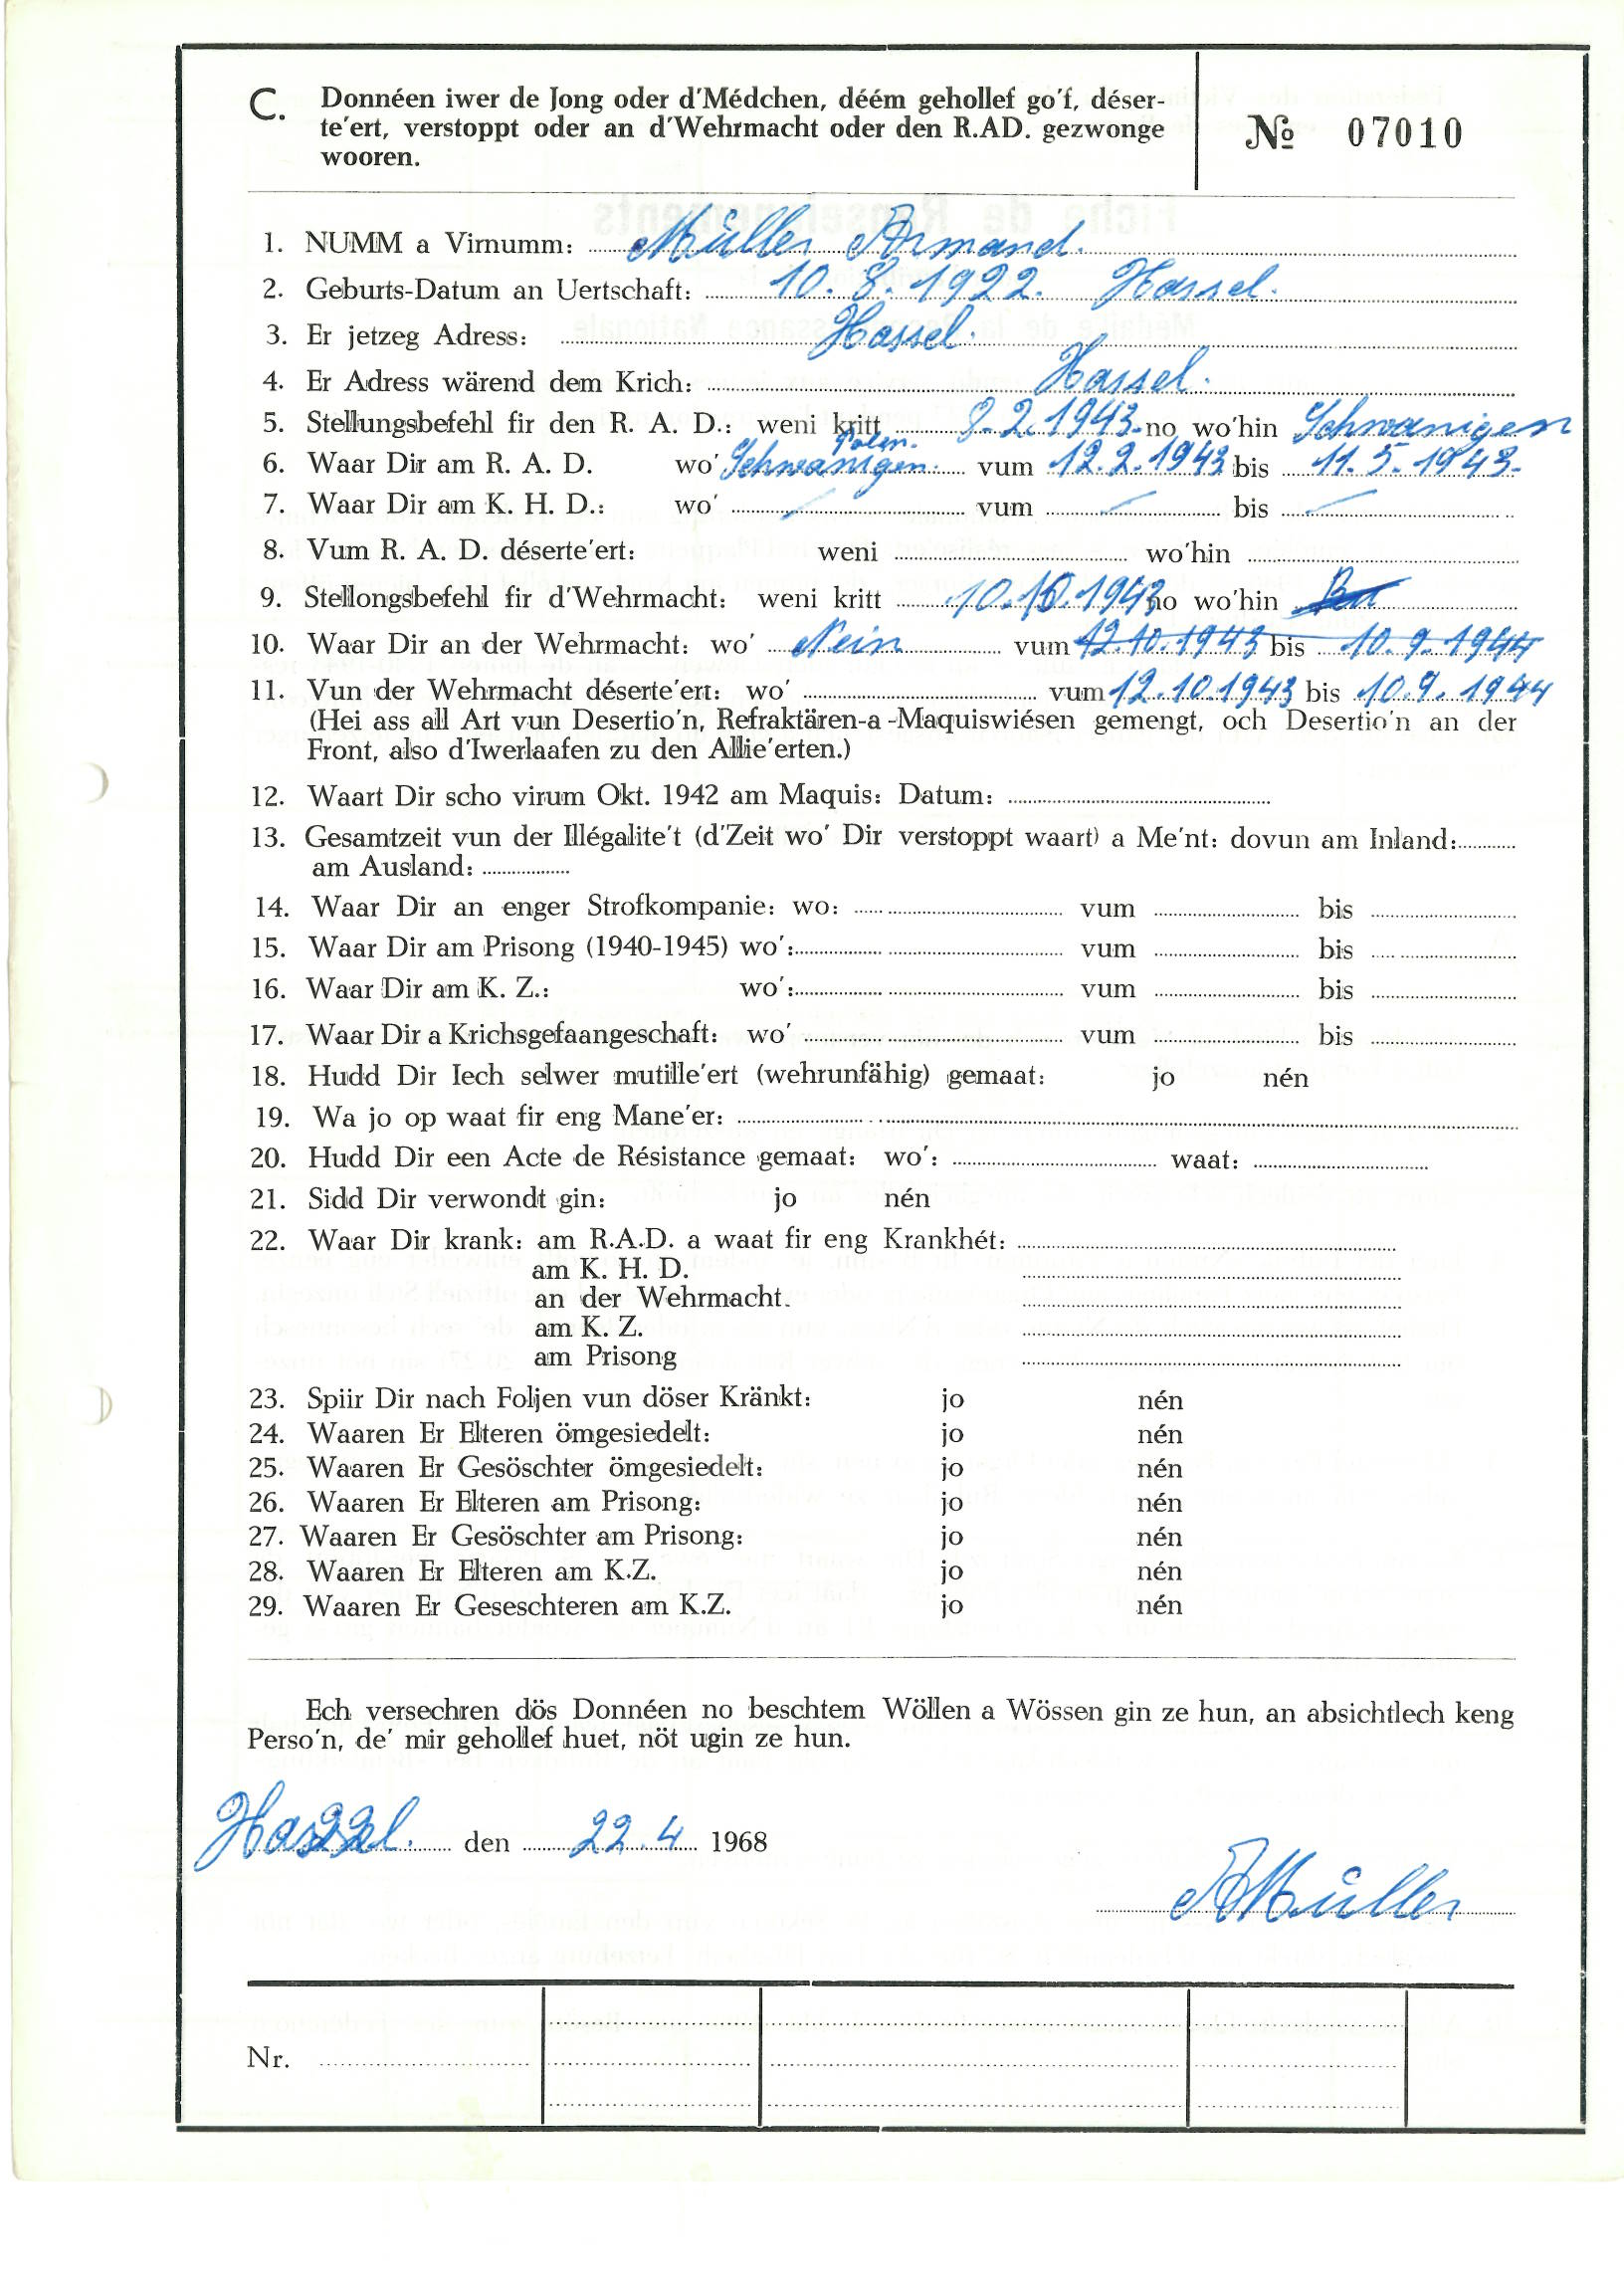 C. Donnéen iwer de Jong oder d'Médchen, déém gehollef go'f, déser-
te'ert, verstoppt oder an d'Wehrmacht oder den R.AD. gezwonge
wooren.
№ 07010
1. NUMM a Virnumm: Müller Armand.
2. Geburts-Datum an Uertschaft: 10. 8. 1922. Hassel.
3. Er jetzeg Adress: Hassel.
4. Er Adress wärend dem Krich: Hassel.
5. Stellungsbefehl fir den R. A. D.: weni kritt 8. 2. 1943. no wo'hin Schwanigen
Polen.
6. Waar Dir am R. A. D. wo' Schwanigen. vum 12. 2. 1943 bis 11. 5. 1943.
7. Waar Dir am K. H. D.: wo' / vum / bis /
8. Vum R. A. D. déserte'ert: weni wo'hin
9. Stellongsbefehl fir d'Wehrmacht: weni kritt 10. 10. 1943 no wo'hin
10. Waar Dir an der Wehrmacht: wo' Nein vum 12. 10. 1943 bis 10. 9. 1944
11. Vun der Wehrmacht déserte'ert: wo' vum 12. 10 1943 bis 10. 9. 1944
(Hei ass all Art vun Desertio'n, Refraktären-a-Maquiswiésen gemengt, och Desertio'n an der
Front, also d'Iwerlaafen zu den Allie'erten.)
12. Waart Dir scho virum Okt. 1942 am Maquis: Datum:
13. Gesamtzeit vun der Illégalite't (d'Zeit wo' Dir verstoppt waart) a Me'nt: dovun am Inland:
am Ausland:
14. Waar Dir an enger Strofkompanie: wo: vum bis
15. Waar Dir am Prisong (1940-1945) wo': vum bis
16. Waar Dir am K. Z.: wo': vum bis
17. Waar Dir a Krichsgefaangeschaft: wo' vum bis
18. Hudd Dir Iech selwer mutille'ert (wehrunfähig) gemaat: jo nén
19. Wa jo op waat fir eng Mane'er:
20. Hudd Dir een Acte de Résistance gemaat: wo': waat:
21. Sidd Dir verwondt gin: jo nén
22. Waar Dir krank: am R.A.D. a waat fir eng Krankhét:
am K. H. D.
an der Wehrmacht.
am K. Z.
am Prisong
23. Spiir Dir nach Foljen vun döser Kränkt: jo nén
24. Waaren Er Elteren ömgesiedelt: jo nén
25. Waaren Er Gesöschter ömgesiedelt: jo nén
26. Waaren Er Elteren am Prisong: jo nén
27. Waaren Er Gesöschter am Prisong: jo nén
28. Waaren Er Elteren am K.Z. jo nén
29. Waaren Er Geseschteren am K.Z. jo nén
Ech versechren dös Donnéen no beschtem Wöllen a Wössen gin ze hun, an absichtlech keng
Perso'n, de' mir gehollef huet, nöt ugin ze hun.
Hassel. den 22. 4 1968
AMüller
Nr.